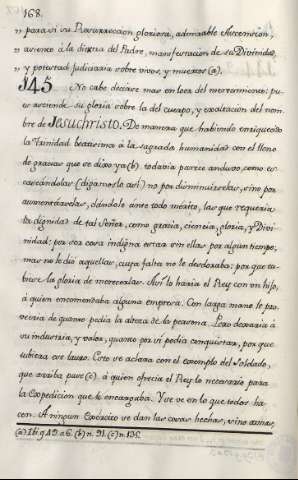 168.
„ para sí su Resurreccion gloriosa, admirable Ascension,
„ asiento à la diestra del Padre, manifestacion de su Divinidad,
„ y potestad judiciaria sobre vivos, y muertos (a).
145 No cabe decirse mas en loor del merecimiento: pu-
es asciende su gloria sobre la del cuerpo, y exaltacion del nom-
bre de Jesuchristo. De manera que habiendo enriquecido
la Trinidad beatissima à la sagrada humanidad con el lleno
de gracias que se dixo ya (b) todavia parece anduvo, como es-
caseándolas (digamoslo asi) no por disminuirselas, sino por
aumentárselas, dándole ànte todo mérito, las que requeria
la dignidad de tal Señor, como gracia, ciencia, gloria, y Divi-
nidad: por ser cosa indigna estar sin ellas por algun tiempo;
mas no le dió aquellas, cuya falta no le desdoraba: por que tu-
biese la gloria de merecerlas. Así lo haria el Rey con un hijo,
á quien encomendaba alguna empresa. Con larga mano le pro-
veeria de quanto pedia la alteza de la persona. Pero dexaria à
su industria, y valor, quanto por sí podia conquistar, por que
tubiera ese lauro. Esto se aclara con el exemplo del Soldado,
que arriba puse (c). à quien ofrecia el Rey lo necesario para
la Expedicion que le encargaba. Y se ve en lo que todos ha-
cen. A ningun Exército se dan las cosas hechas, sino armas,
(a) Ib. q. 49. a. 6. (b) n. 91. (c) n. 136.